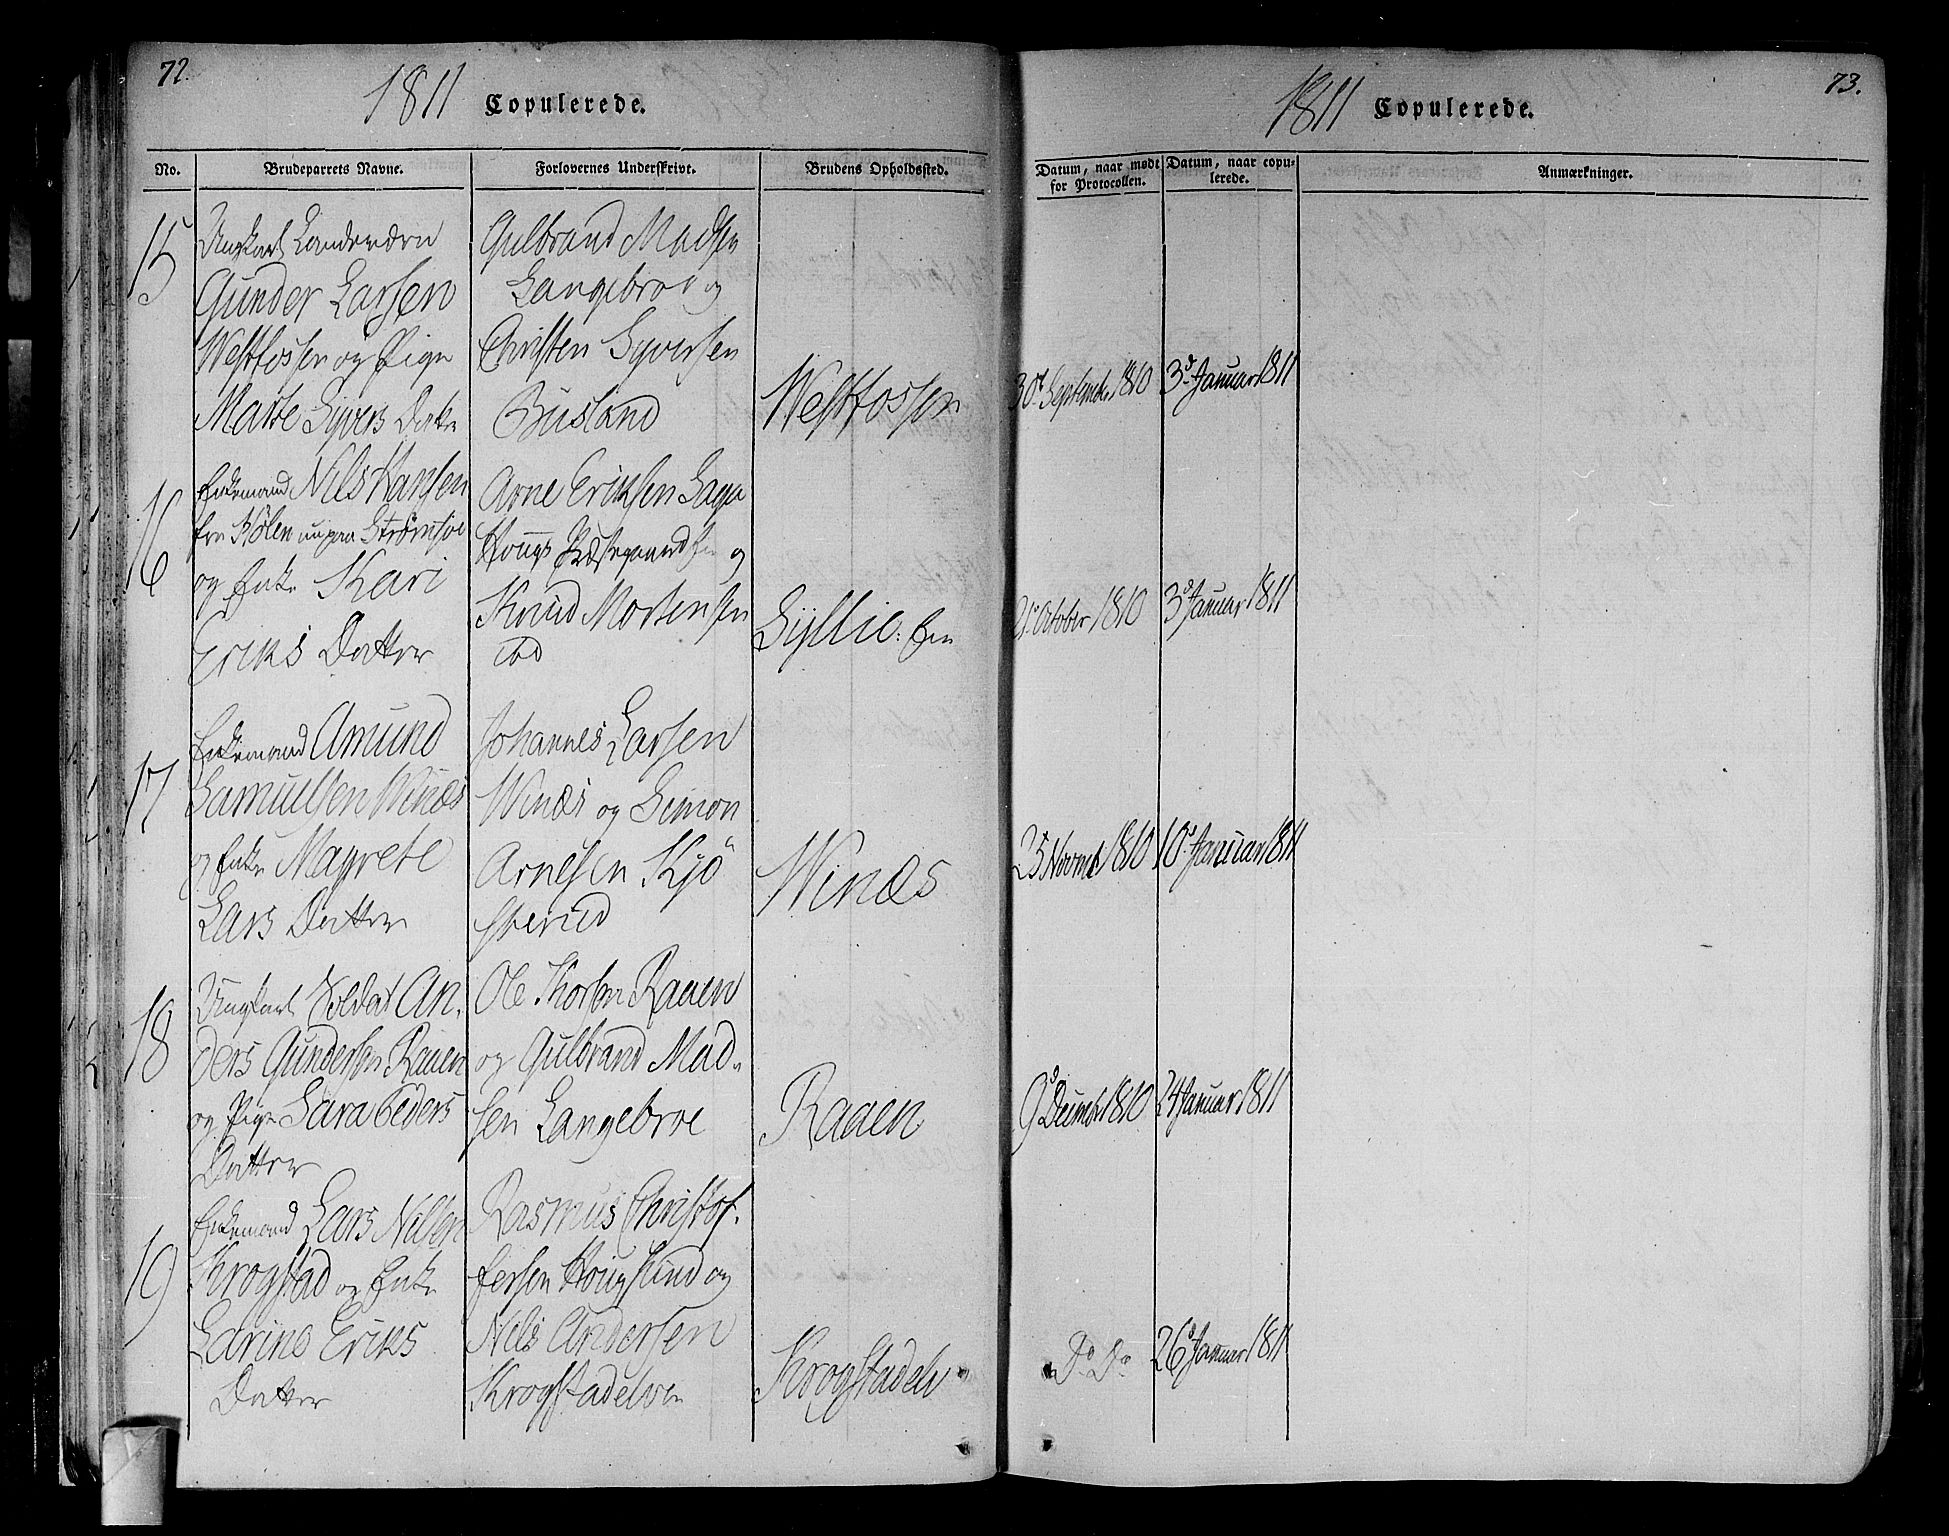 72.
1811 Copulerede.
No. Brudeparrets Navne. Forlovernes Underskrivt. Brudens Opholdssted.
15
Ungkarl Landeværn
Gunder Larsen
Westfossen og Pige
Marte Syvers Datter
Gulbrand Madsen
Langebroe og
Christen Syversen
Büsland
Westfossen
16
Enkemand Nils Hansen
fra Hølen nu paa Strømsøe
og Enke Kari
Eriks Datter
Arne Eriksen
Hougs Præstegaards Eie og
Knud Mortensen
ibd
Syllie: Eie
17
Enkemand Amund
Samuelsen Winæs
og Enke Magrete
Lars Datter
Johannes Larsen
Winæs og Simon
Arnesen Kjö
sterud
Winæs
18
Ungkarl Soldat An,
ders Gundersen Raaen
og Pige Sara Peders
Datter
Ole Thorsen Raaen
og Gulbrand Mad,
sen Langebroe
Raaen
19
Enkemand Lars Nilsen
Krogstad og Enke
Larine Eriks
Datter
Rasmus Christof,
fersen Hougsund og
Nils Andersen
Krogstadelven
Krogstadelv
73.
1811 Copulerede.
Datum, naar mødt for Protocollen. Datum, naar copulerede. Anmærkninger.
30te Septembr 1810 3d Januar 1811
October 1810 3d Januar 1811
25 Novembr 1810 10d Januar 1811
9d Decembr 1810 24 Januar 1811
Do Do 26d Januar 1811